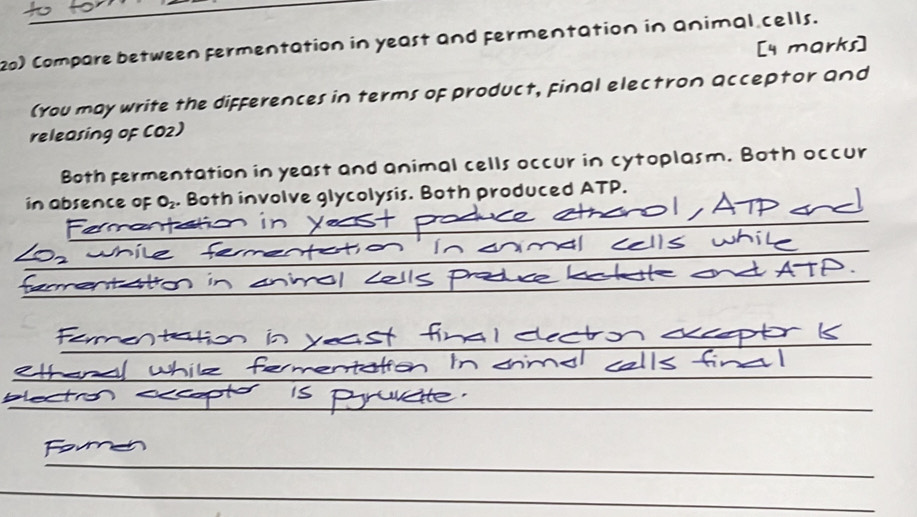 to for
20) Compare between fermentation in yeast and fermentation in animal cells.
[4 marks]
(You may write the differences in terms of product, final electron acceptor and
releasing of CO2)
Both fermentation in yeast and animal cells occur in cytoplasm. Both occur
in absence of O₂. Both involve glycolysis. Both produced ATP.
Fermentation in yeast produce ethanol, ATP and
CO₂ while fermentation in animal cells while
fermentation in animal cells produce lactate and ATP.
Fermentation in yeast final electron acceptor is
ethanal while fermentation in animal cells final
electron acceptor is pyruvate.
Fermen